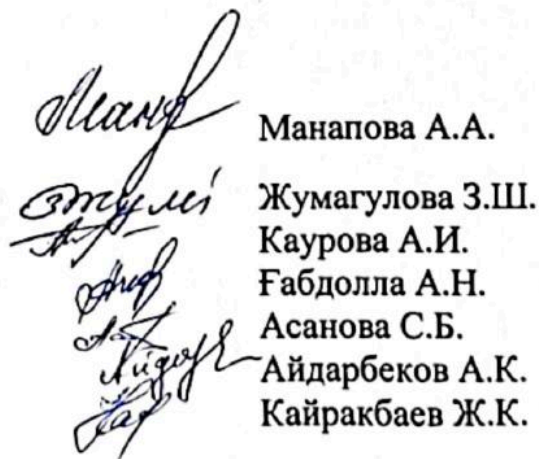 Манапова А.А.
Жумагулова З.Ш.
Каурова А.И.
Ғабдолла А.Н.
Асанова С.Б.
Айдарбеков А.К.
Кайракбаев Ж.К.